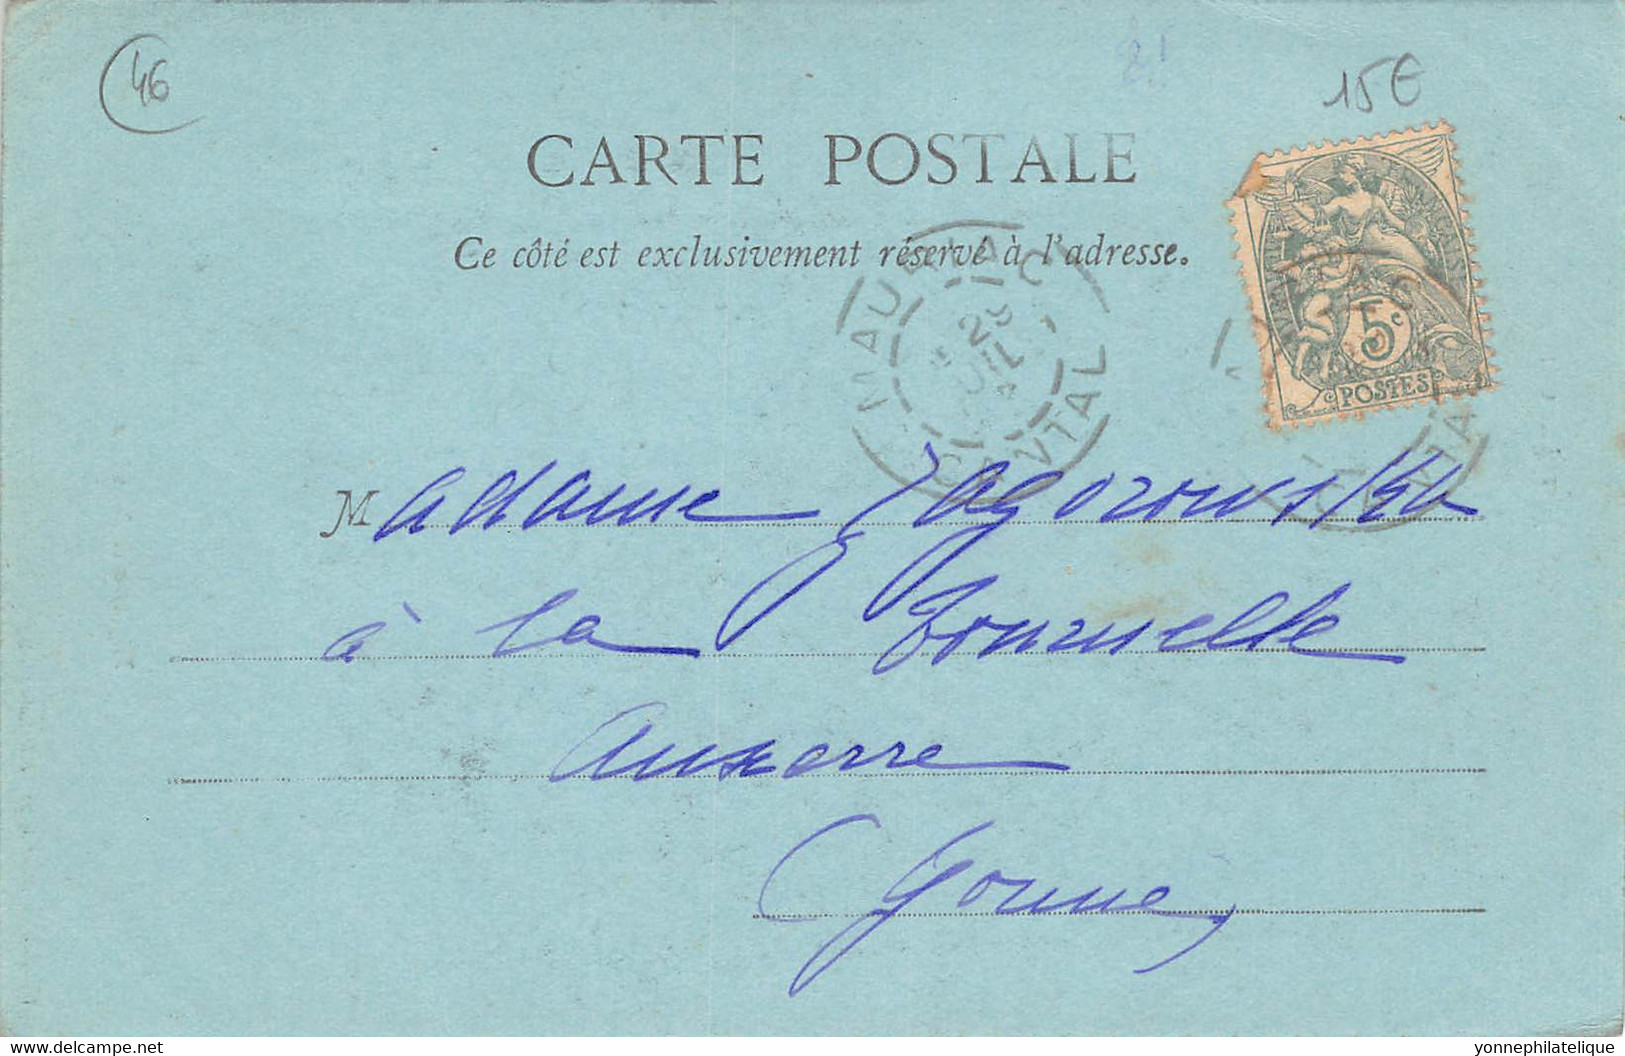 46
15€
CARTE POSTALE
Ce côté est exclusivement réservé à l'adresse.
MAURIAC
29
JUIL
CANTAL
5c
POSTES
Madame Zagorowska
à la Tournelle
Auxerre
(Yonne)
www.delcampe.net
yonnephilatelique